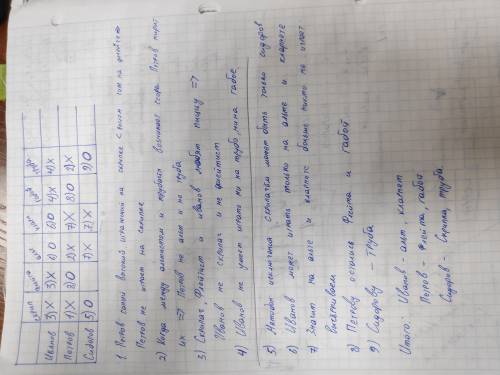 скрип флейта альт клар габ труба
Иванов 3) X 3) X 6) O 6) O 4) X 4) X
Петров 1) X 8) O 2) X 7) X 8) O 2) X
Сидоров 5) O 7) X 7) X 9) O
1 Петров самый высокий играющий на скрипке
Петров не играет на скрипке
2) Когда между альтистом и трубачом возникает ссора Петров мирит
их => Петров не альт и не труба
3) Скрипач Флейтист и Иванов любят пиццу =>
Иванов не скрипач и не флейтист
4) Иванов не умеет играть ни на трубе, ни на габое
5) Методом исключения скрипачём может быть только сидоров
6) Иванов может играть только на альте и кларнете
7) Значит на альте и кларнете больше никто не играет
Вычёркиваем
8) Петрову остались Флейта и габой
9) Сидорову - Труба
Итого: Иванов - альт, кларнет
Петров - Флейта, габой
Сидоров - Скрипка, труба.